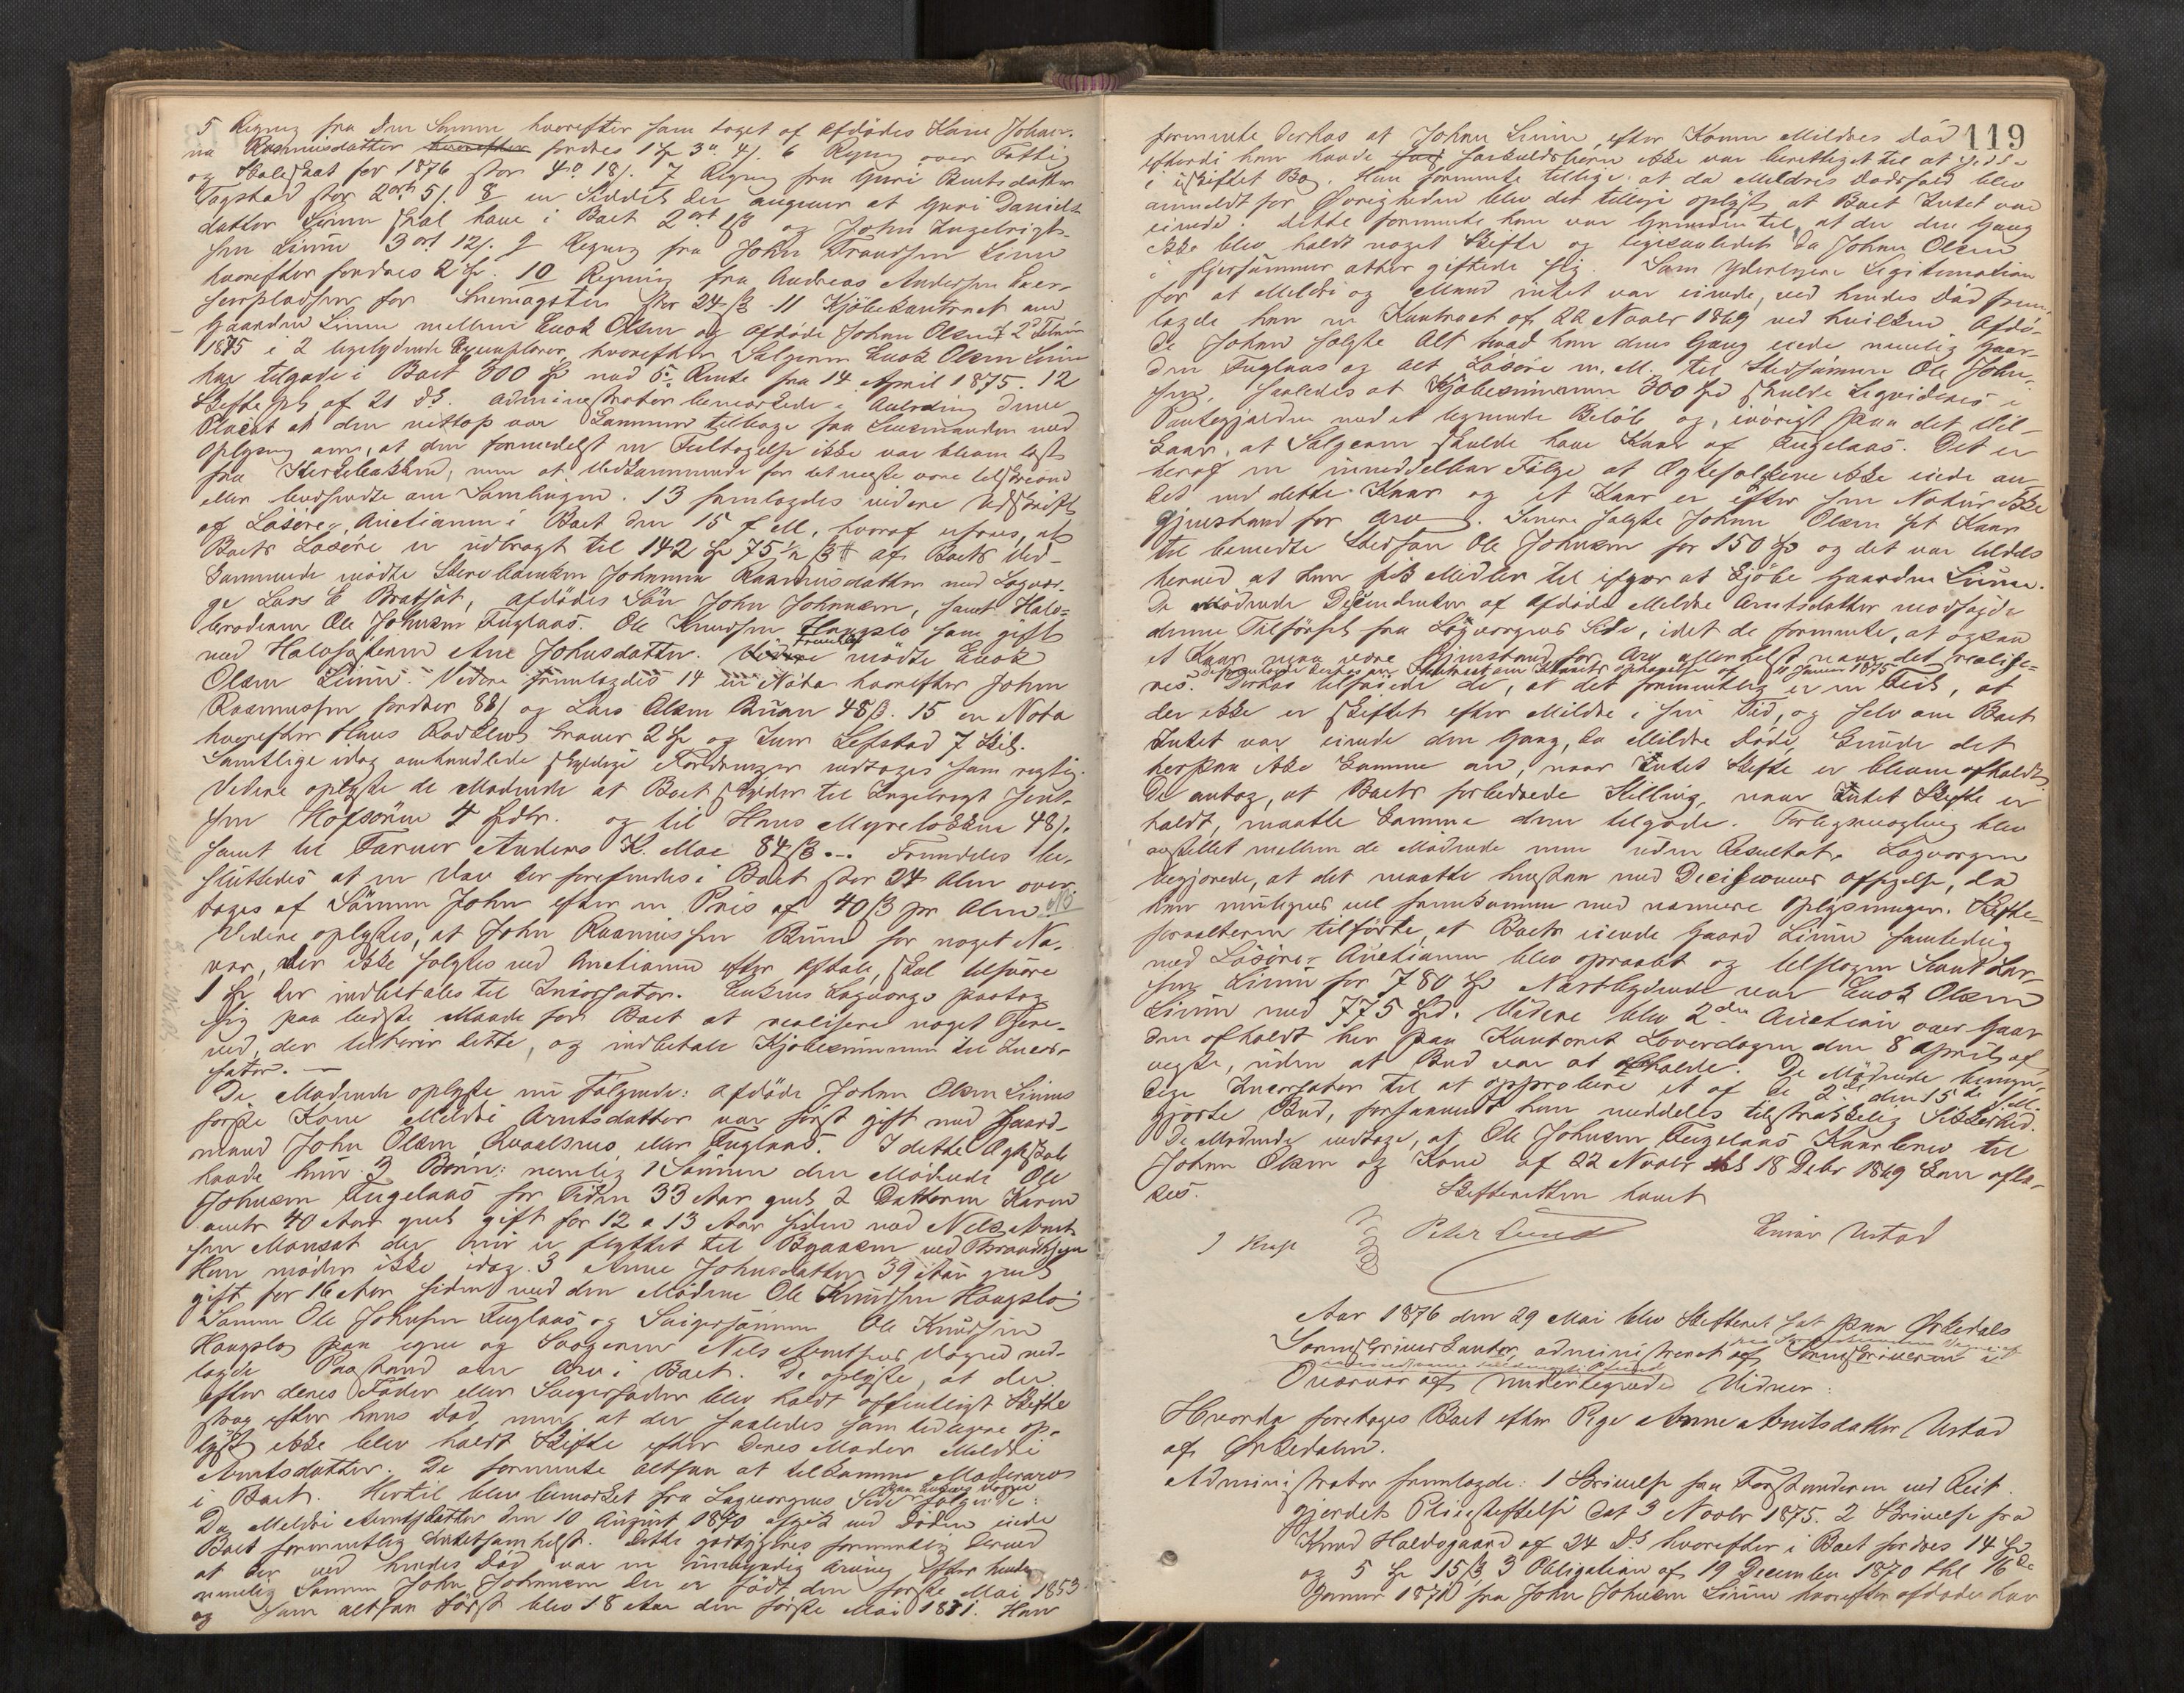 5 Regning fra den Samme hvorefter som taget af Afdødes Kone Johan-
na Rasmusdatter hvorefter fordres 1 Sp 3 ort 4 s. 6 Regning over Fattig
og Skoleskat for 1876 stor 4 ort 18 s. 7 Regning fra Guri Berntsdatter
Fagstad stor 2 ort 5 s. 8 en Seddel der angiver at Guri Daniels-
datter Liinn skal have i Boet 2 ort 1 s og John Ingebrigt-
sen Liinn 3 ort 12 s. 9 Regning fra John Trondsen Liinn
hvorefter fordres 2 Sp. 10 Regning fra Andreas Andersen Exer-
serpladsen for Snemagsten stor 24 s - 11 Kjøbekontract om
Gaarden Liinn mellem Enok Olsen og afdøde John Olsen af 2 Februar
1875 i 2 ligelydende Exemplarer, hvorefter Sælgeren Enok Olsen Liinn
har tilgode i Boet 300 Sp med 5 % Rente fra 14 April 1875. 12
Skiftepl. af 21 ds. Administrator bemærkede i Anledning denne
Placat at den nettop var kommen tilbage fra Lensmanden med
Oplysning om, at den formedelst en Feiltagelse ikke var bleven læst
fra Kirkebakken, men at Vedkommende for det meste vare tilskrevne
eller budsendte om Samlingen. 13 fremlagdes videre Udskrift
af Løsøre-Auctionen i Boet den 15 f. M., hvoraf erfares, at
Boets Løsøre er udbragt til 142 Sp 75 1/2 s. Af Boets Ved-
kommende mødte Stervboenken Johanna Rasmusdatter med Lagvær-
ge Lars E Bratset, Afdødes Søn John Johnsen, samt Halv-
broderen Ole Johnsen Fuglaas. Ole Knudsen Haugslo som gift
med Halvsøsteren Ane Johnsdatter. Videre Fremdeles mødte Enok
Olsen Liinn. Videre fremlagdes 14 en Nota hvorefter John
Rasmussen fordrer 88 s og Lars Olsen Buan 48 s. 15 en Nota
hvorefter Hans Rødklev kræver 2 Sp og Iver Lefstad 7 Skil.
Samtlige idag omhandlede skyldige Fordringer vedtoges som rigtig.
Videre oplyste de Mødende at Boet skylder til Ingebrigt Jons-
sen Hofsøren 4 Spdlr. og til Hans Myreløkken 48 s.
samt til Farver Anders K. Moe 84 s. -. Fremdeles be-
sluttedes at en Vav der forefindes i Boet stor 24 Alen over-
tages af Sønnen John efter en Pris af 40 s pr Alen. NB
Videre oplystes, at John Rasmussen Buan for noget Na-
ver, der ikke solgtes ved Auctionen efter Aftale, skal tilsvare
1 Sp der indbetales til Incassator. Enkens Lagværge paatog
sig paa bedste Maade for Boet at realisere noget Fjøs-
ved, der tilhører dette, og indbetale Kjøbesummen til Incas-
sator. -
De Mødende oplyste nu Følgende: Afdøde John Olsen Liinns
første Kone Meldri Arntsdatter var først gift med Gaard-
mand John Olsen Qvaalsnes eller Fuglaas. I dette Ægteskab
havde hun 3 Børn: nemlig 1 Sønnen den Mødende Ole
Johnsen Fugelaas for Tiden 33 Aar gml. 2 Datteren Karen
omtr 40 Aar gml. gift for 12 a 13 Aar siden med Nils Arnt-
sen Monset der nu er flyttet til Byaasen ved Throndhjem
Han møder ikke idag. 3 Anne Johnsdatter 39 Aar gml.
gift for 16 Aar siden med den Mødende Ole Knudsen Haugslo
Sønnen Ole Johnsen Fuglaas og Svigersønnen Ole Knudsen
Haugslo paa egne og Svogeren Nils Arntsens Vegne ned-
lagde Paastand om Arv i Boet. De oplyste, at der
efter deres Fader eller Svigerfader blev holdt offentligt Skifte
strax efter hans Død, men at der saaledes som tidligere op-
lyst ikke blev holdt Skifte efter Deres Moder Meldri
Arntsdatter. De formente altsaa at tilkomme Mødrearv
i Boet. Hertil blev bemærket fra Lagværgens Side paa Enkens Vegne Følgende:
Da Meldri Arntsdatter den 10 August 1870 afgik ved Døden eiede
Boet formentlig Intetsomhelst. Dette godtgjøres formentlig derved
at der ved hendes Død var en umyndig Arving efter hende
nemlig Sønnen John Johnsen der er født den første Mai 1853
og som altsaa først blev 18 Aar den første Mai 1871. Han
119
formente derhos at John Liinn efter Konen Meldris Død
efterdi han havde særkuldsbørn ikke var berettiget til at sidde
i uskiftet Bo. Han formente tillige at da Meldris Dødsfald blev
anmeldt for Øvrigheden blev det tillige oplyst at Boet Intet var
eiende. Dette formente han var Grunden til, at der den Gang
ikke blev holdt noget Skifte og ligesaaledes da John Olsen
i Fjorsommer atter giftede sig. Som yderligere Legitimation
for at Meldri og Mand intet var eiende, ved hendes Død frem-
lagde han en Kontract af 22 Novbr 1869 ved hvilken Afdø-
de John solgte Alt hvad han den Gang eiede nemlig Gaar-
den Fuglaas og alt Løsøre m. M. til Stedsønnen Ole John-
sen, saaledes at Kjøbesummen 300 Spd skulde liqvideres i
Pantegjælden med et lignende Beløb og iøvrigt paa det Vil-
kaar, at Sælgeren skulde have Kaar af Fugelaas. Det er
heraf en umiddelbar Følge at Ægtefolkene ikke eiede an-
det end dette Kaar og et Kaar er efter sin Natur ikke
Gjenstand for Arv. Senere solgte John Olsen sit Kaar
til bemeldte Stedsøn Ole Johnsen for 150 Sp og det var tildels
herved at han fik Midler til ifjor at kjøbe Gaarden Liinn.
De Mødende Descendenter af afdøde Meldri Arntsdatter modsagde
denne Tilførsel fra Lagværgens Side, idet de formente, at ogsaa
et Kaar maa være Gjenstand for Arv allerhelst naar det realise-
res. De fremlagde derhos en Kontract om Kaarets Ophævelse af Januar 1875 Derhos tilføiede de, at det formentlig er en Feil, at
der ikke er skiftet efter Meldri i sin Tid, og selv om Boet
Intet var eiende den Gang, da Meldri døde, kunde det
herpaa ikke komme an, naar Intet Skifte er bleven afholdt.
De antog, at Boets forbedrede Stilling, naar Intet Skifte er
holdt, maatte komme dem tilgode. Forligsmægling blev
anstillet mellem de Mødende men uden Resultat. Lagværgen
begjærede, at det maatte henstaa med Decisionens Afsigelse, da
han muligens vil fremkomme med nærmere Oplysninger. Skifte-
forvalteren tilførte, at Boets eiende Gaard Liinn samtidig
med Løsøre-Auctionen blev opraabt og tilslagen Knut Lar-
sen Liinn for 780 Sp Næstbydende var Enok Olsen
Liinn med 775 Spd. Videre blev 2den Auction over Gaar-
den afholdt her paa Kontoret Løverdagen den 8 April af-
vigte, uden at Bud var at erholde. De Mødende bemyn-
dige Incassator til at approbere et af de 2de den 15de f. M.
gjorte Bud, forsaavidt ham meddeles tilstrækkelig Sikkerhed.
De Mødende vedtoge, at Ole Johnsen Fuglelaas Kaarbrev til
John Olsen og Kone af 22 Novbr thl 18 Debr 1869 kan afly-
ses.
Skifteretten hævet
J Krag
Peter Lund
Einar Ustad
Aar 1876 den 29 Mai blev Skifteret sat paa Ørkedals
Sorenskriverkontor, administreret af Sorenskriveren i
Overvær af undertegnede Vidner:
Hvorda foretoges Boet efter Pige Anne Arntsdatter Ustad
af Ørkedalen.
Administrator fremlagde: 1 Skrivelse fra Forstanderen ved Reit-
gjerdets Pleiestiftelse dat 3 Novbr 1875. 2 Skrivelse fra
Knud Halvsgaard af 24 Ds hvorefter i Boet fordres 14 Sp
og 5 Sp 15 s. 3 Obligation af 19 December 1870 thl 16de
Januar 1871 fra John Johnsen Liinn hvorefter afdøde har